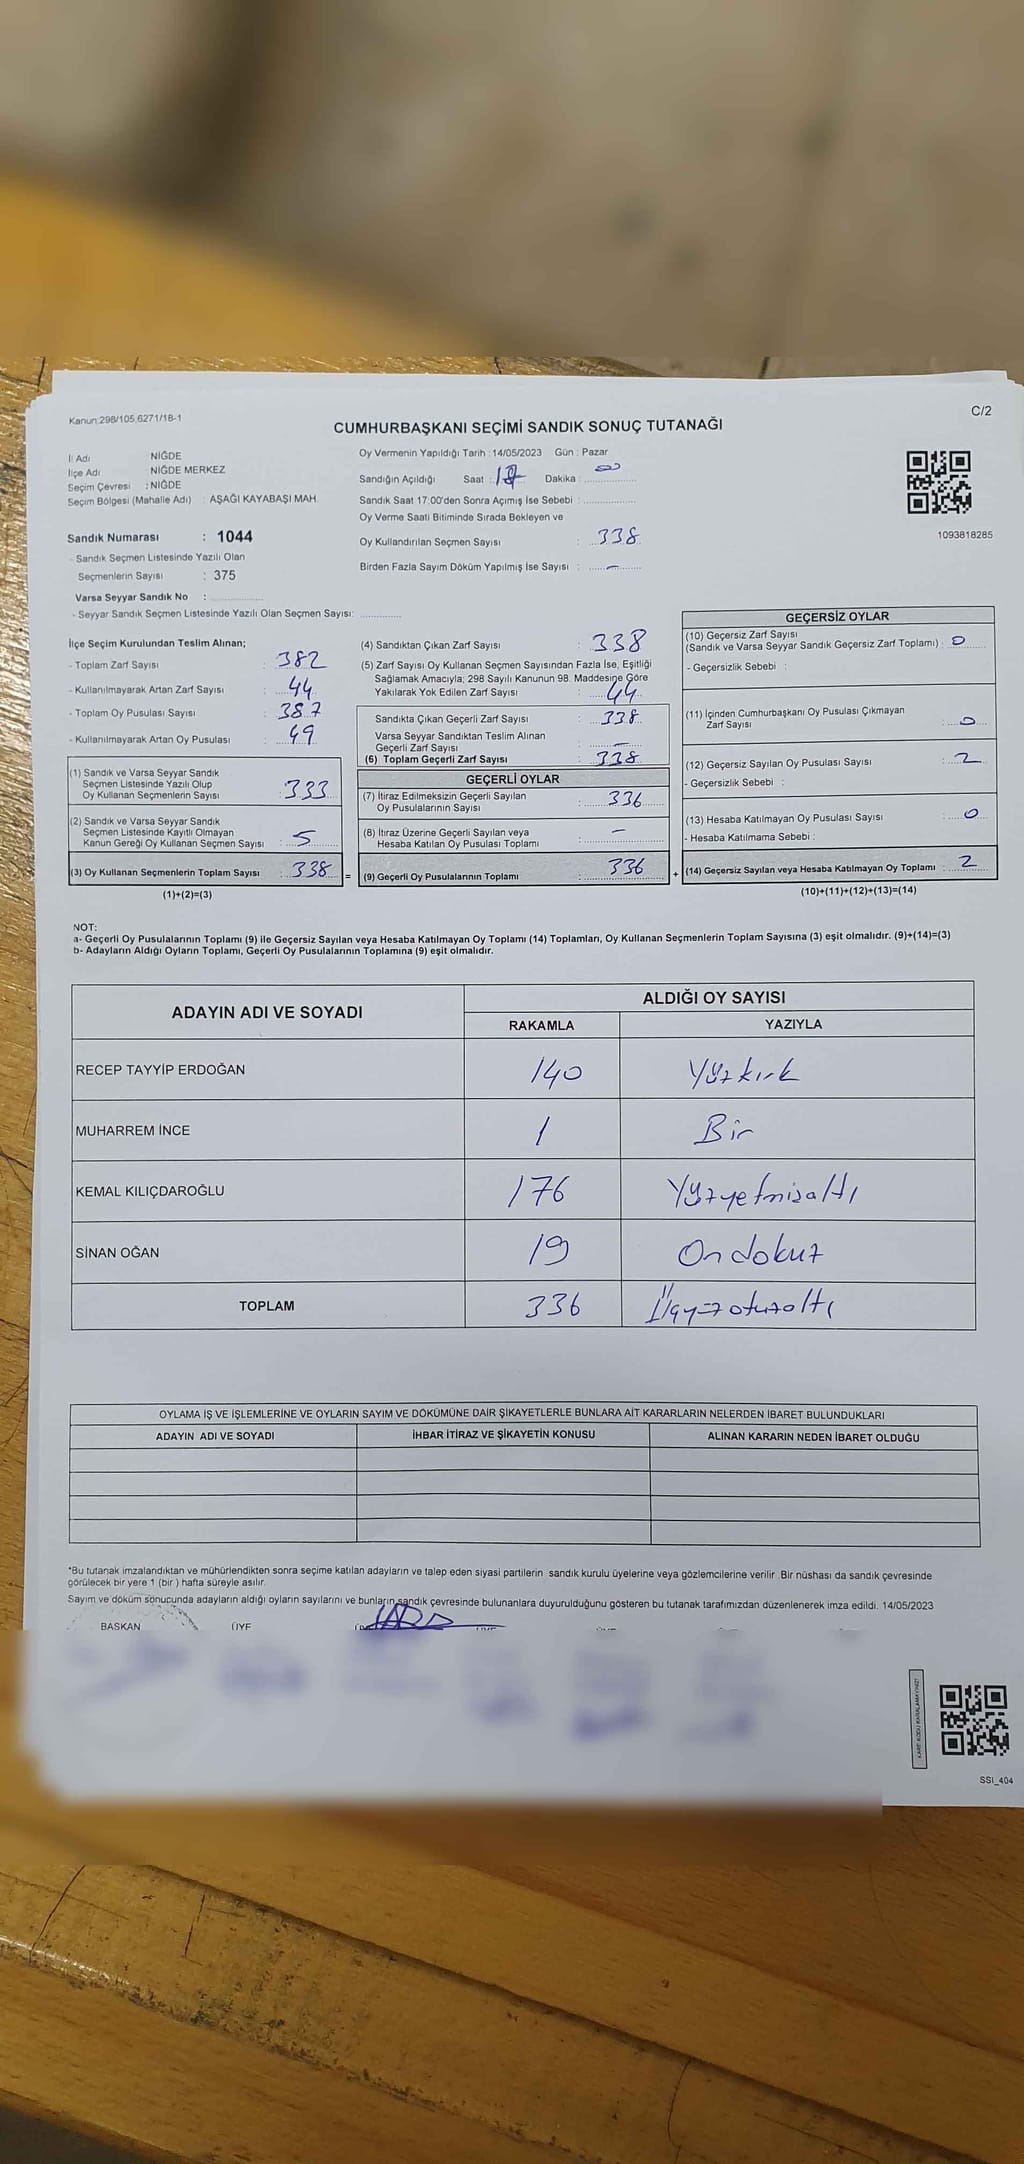 Kanun:298/105,6271/18-1
C/2
CUMHURBAŞKANI SEÇİMİ SANDIK SONUÇ TUTANAĞI
İl Adı NİĞDE
İlçe Adı : NİĞDE MERKEZ
Seçim Çevresi : NİĞDE
Seçim Bölgesi (Mahalle Adı) : AŞAĞI KAYABAŞI MAH.
Sandık Numarası : 1044
- Sandık Seçmen Listesinde Yazılı Olan
Seçmenlerin Sayısı : 375
Varsa Seyyar Sandık No :
- Seyyar Sandık Seçmen Listesinde Yazılı Olan Seçmen Sayısı:
Oy Vermenin Yapıldığı Tarih :14/05/2023 Gün : Pazar
Sandığın Açıldığı Saat : Dakika : 00
Sandık Saat 17:00'den Sonra Açımış İse Sebebi :
Oy Verme Saati Bitiminde Sırada Bekleyen ve
Oy Kullandırılan Seçmen Sayısı : 338
Birden Fazla Sayım Döküm Yapılmış İse Sayısı : —
1093818285
İlçe Seçim Kurulundan Teslim Alınan;
- Toplam Zarf Sayısı : 382
- Kullanılmayarak Artan Zarf Sayısı : 44
- Toplam Oy Pusulası Sayısı : 387
- Kullanılmayarak Artan Oy Pusulası : 49
(1) Sandık ve Varsa Seyyar Sandık
Seçmen Listesinde Yazılı Olup
Oy Kullanan Seçmenlerin Sayısı : 333
(2) Sandık ve Varsa Seyyar Sandık
Seçmen Listesinde Kayıtlı Olmayan
Kanun Gereği Oy Kullanan Seçmen Sayısı : 5
(3) Oy Kullanan Seçmenlerin Toplam Sayısı : 338
(1)+(2)=(3)
=
(4) Sandıktan Çıkan Zarf Sayısı : 338
(5) Zarf Sayısı Oy Kullanan Seçmen Sayısından Fazla İse, Eşitliği
Sağlamak Amacıyla; 298 Sayılı Kanunun 98. Maddesine Göre
Yakılarak Yok Edilen Zarf Sayısı : 44
Sandıkta Çıkan Geçerli Zarf Sayısı : 338
Varsa Seyyar Sandıktan Teslim Alınan
Geçerli Zarf Sayısı : —
(6) Toplam Geçerli Zarf Sayısı : 338
GEÇERLİ OYLAR
(7) İtiraz Edilmeksizin Geçerli Sayılan
Oy Pusulalarının Sayısı : 336
(8) İtiraz Üzerine Geçerli Sayılan veya
Hesaba Katılan Oy Pusulası Toplamı : —
(9) Geçerli Oy Pusulalarının Toplamı : 336
+
GEÇERSİZ OYLAR
(10) Geçersiz Zarf Sayısı
(Sandık ve Varsa Seyyar Sandık Geçersiz Zarf Toplamı) : 0
- Geçersizlik Sebebi :
(11) İçinden Cumhurbaşkanı Oy Pusulası Çıkmayan
Zarf Sayısı : 0
(12) Geçersiz Sayılan Oy Pusulası Sayısı : 2
- Geçersizlik Sebebi :
(13) Hesaba Katılmayan Oy Pusulası Sayısı : 0
- Hesaba Katılmama Sebebi :
(14) Geçersiz Sayılan veya Hesaba Katılmayan Oy Toplamı : 2
(10)+(11)+(12)+(13)=(14)
NOT:
a- Geçerli Oy Pusulalarının Toplamı (9) ile Geçersiz Sayılan veya Hesaba Katılmayan Oy Toplamı (14) Toplamları, Oy Kullanan Seçmenlerin Toplam Sayısına (3) eşit olmalıdır. (9)+(14)=(3)
b- Adayların Aldığı Oyların Toplamı, Geçerli Oy Pusulalarının Toplamına (9) eşit olmalıdır.
ADAYIN ADI VE SOYADI
ALDIĞI OY SAYISI
RAKAMLA YAZIYLA
RECEP TAYYİP ERDOĞAN 140 Yüzkırk
MUHARREM İNCE 1 Bir
KEMAL KILIÇDAROĞLU 176 Yüzyetmişaltı
SİNAN OĞAN 19 Ondokuz
TOPLAM 336 Üçyüzotuzaltı
OYLAMA İŞ VE İŞLEMLERİNE VE OYLARIN SAYIM VE DÖKÜMÜNE DAİR ŞİKAYETLERLE BUNLARA AİT KARARLARIN NELERDEN İBARET BULUNDUKLARI
ADAYIN ADI VE SOYADI İHBAR İTİRAZ VE ŞİKAYETİN KONUSU ALINAN KARARIN NEDEN İBARET OLDUĞU
*Bu tutanak imzalandıktan ve mühürlendikten sonra seçime katılan adayların ve talep eden siyasi partilerin sandık kurulu üyelerine veya gözlemcilerine verilir. Bir nüshası da sandık çevresinde
görülecek bir yere 1 (bir ) hafta süreyle asılır.
Sayım ve döküm sonucunda adayların aldığı oyların sayılarını ve bunların sandık çevresinde bulunanlara duyurulduğunu gösteren bu tutanak tarafımızdan düzenlenerek imza edildi. 14/05/2023
BAŞKAN ÜYE
KARE KODU KARALAMAYINIZ!
SSI_404